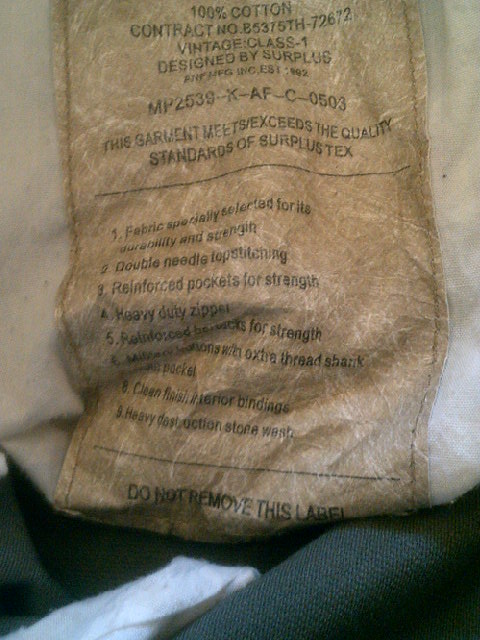 100% COTTON
CONTRACT NO.85375TH-72672
VINTAGE:CLASS-1
DESIGNED BY SURPLUS
MFG INC,EST 1992
MP2539-K-AF-C-0503
THIS GARMENT MEETS/EXCEEDS THE QUALITY
STANDARDS OF SURPLUS TEX
1. Fabric specially selected for its
durability and strength
2. Double needle topstitching
3. Reinforced pockets for strength
4. Heavy duty zipper
5. Reinforced for strength
6. Military buttons with extra thread shank
pocket
8. Clean finish interior bindings
9.Heavy destruction stone wash
DO NOT REMOVE THIS LABEL